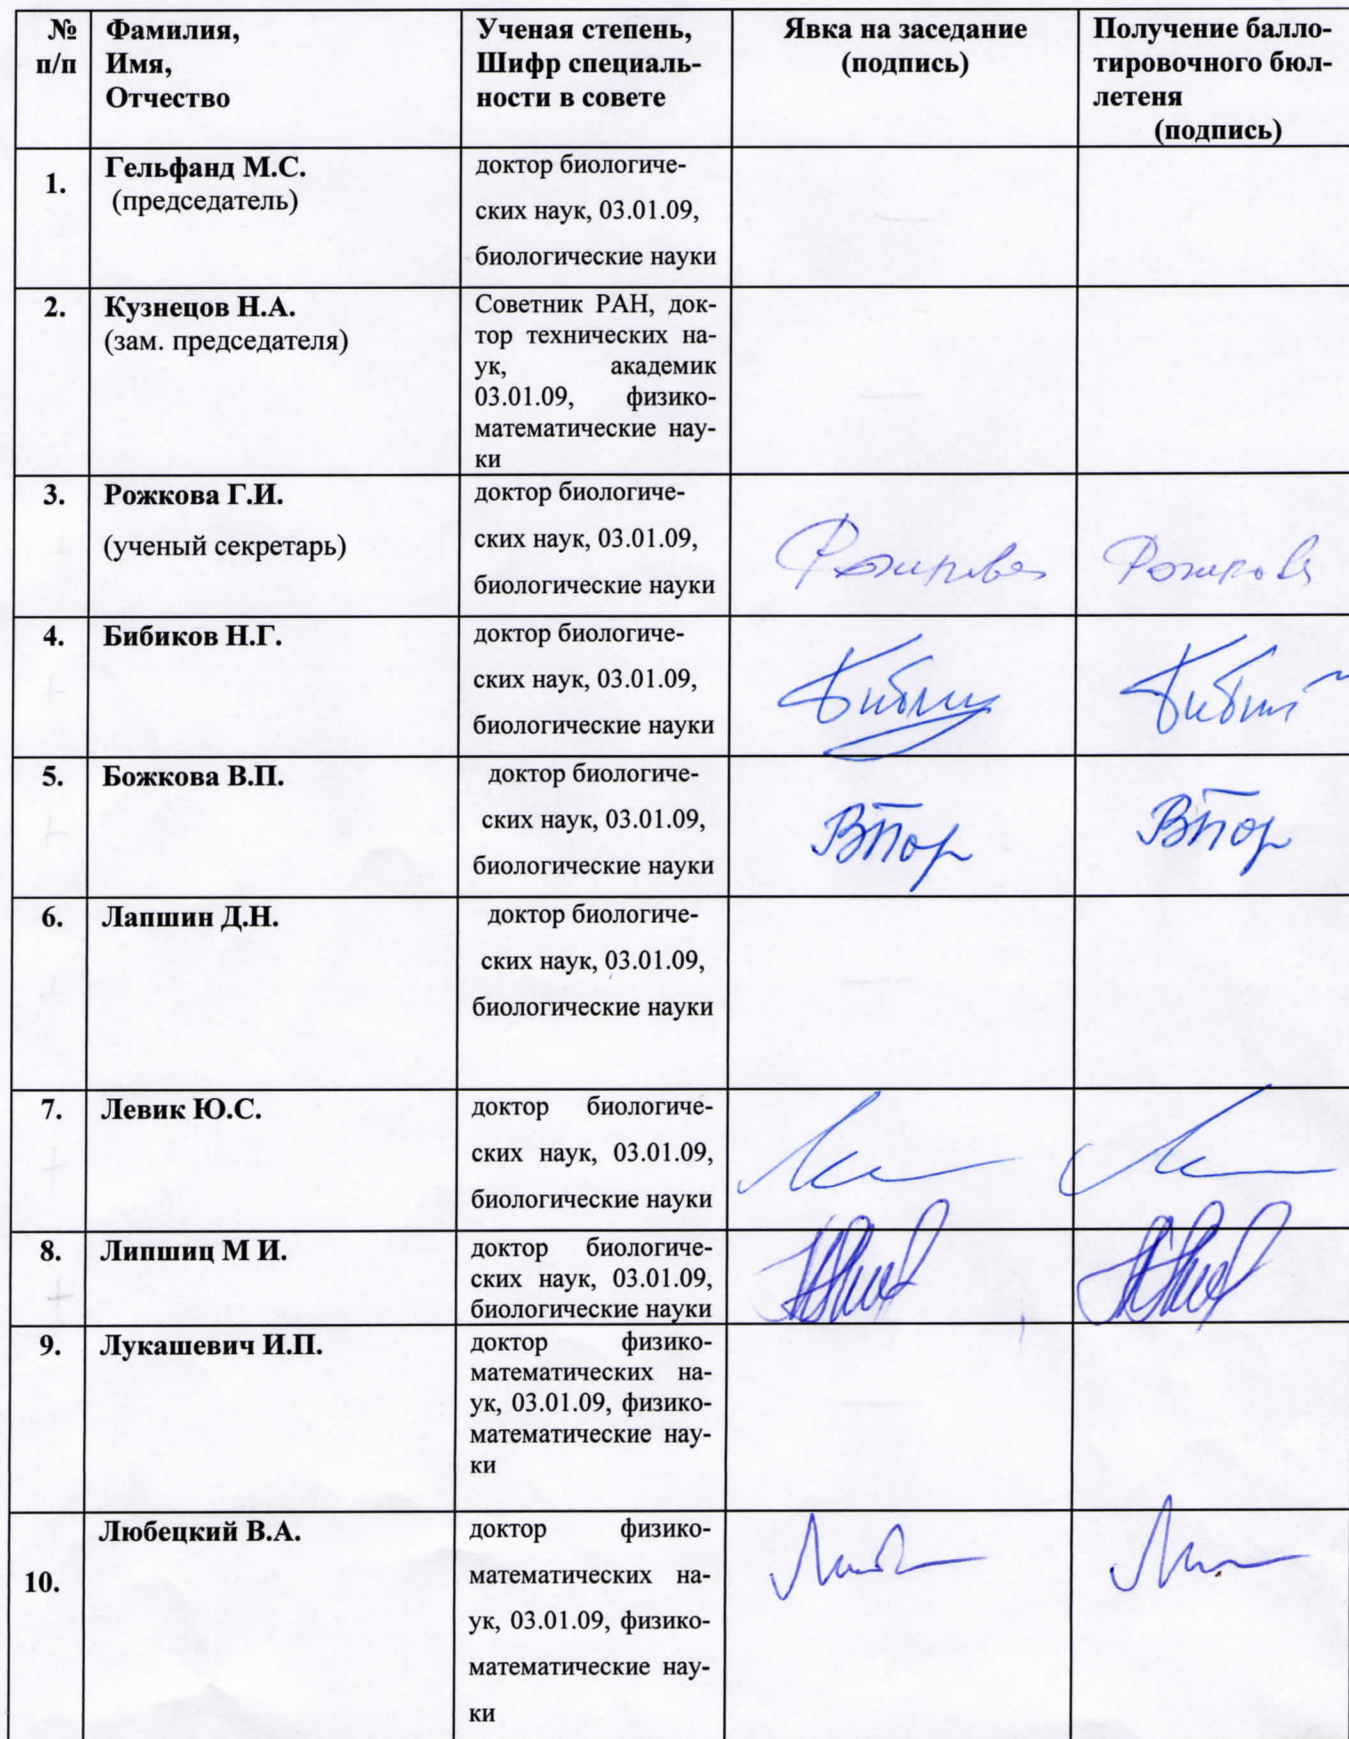 № п/п
Фамилия,
Имя,
Отчество
Ученая степень,
Шифр специаль-
ности в совете
Явка на заседание
(подпись)
Получение балло-
тировочного бюл-
летеня
(подпись)
1.
Гельфанд М.С.
(председатель)
доктор биологиче-
ских наук, 03.01.09,
биологические науки
2.
Кузнецов Н.А.
(зам. председателя)
Советник РАН, док-
тор технических на-
ук, академик
03.01.09, физико-
математические нау-
ки
3.
Рожкова Г.И.
(ученый секретарь)
доктор биологиче-
ских наук, 03.01.09,
биологические науки
Рожкова
Рожкова
4.
Бибиков Н.Г.
доктор биологиче-
ских наук, 03.01.09,
биологические науки
5.
Божкова В.П.
доктор биологиче-
ских наук, 03.01.09,
биологические науки
6.
Лапшин Д.Н.
доктор биологиче-
ских наук, 03.01.09,
биологические науки
7.
Левик Ю.С.
доктор биологиче-
ских наук, 03.01.09,
биологические науки
8.
Липшиц М И.
доктор биологиче-
ских наук, 03.01.09,
биологические науки
9.
Лукашевич И.П.
доктор физико-
математических на-
ук, 03.01.09, физико-
математические нау-
ки
10.
Любецкий В.А.
доктор физико-
математических на-
ук, 03.01.09, физико-
математические нау-
ки